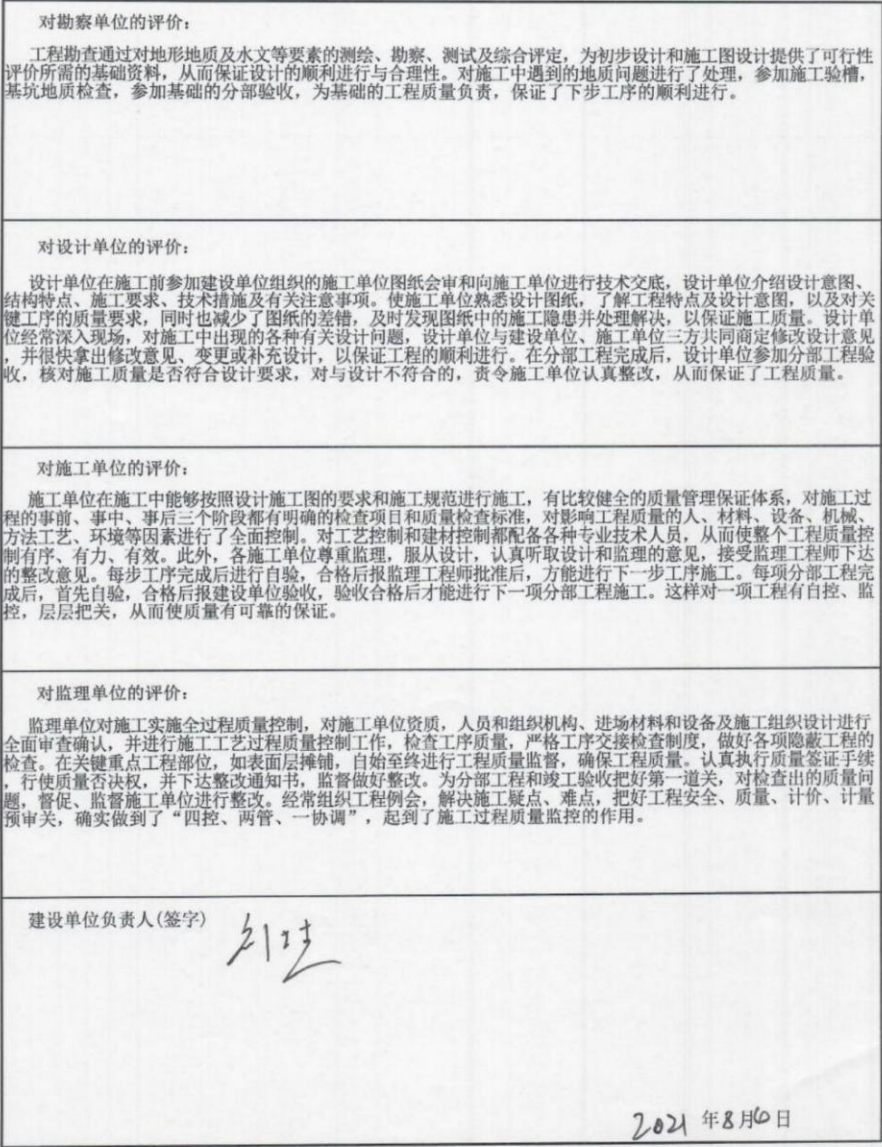 对勘察单位的评价：
工程勘查通过对地形地质及水文等要素的测绘、勘察、测试及综合评定，为初步设计和施工图设计提供了可行性
评价所需的基础资料，从而保证设计的顺利进行与合理性。对施工中遇到的地质问题进行了处理，参加施工验槽，
基坑地质检查，参加基础的分部验收，为基础的工程质量负责，保证了下步工序的顺利进行。
对设计单位的评价：
设计单位在施工前参加建设单位组织的施工单位图纸会审和向施工单位进行技术交底，设计单位介绍设计意图、
结构特点、施工要求、技术措施及有关注意事项。使施工单位熟悉设计图纸，了解工程特点及设计意图，以及对关
键工序的质量要求，同时也减少了图纸的差错，及时发现图纸中的施工隐患并处理解决，以保证施工质量。设计单
位经常深入现场，对施工中出现的各种有关设计问题，设计单位与建设单位、施工单位三方共同商定修改设计意见
，并很快拿出修改意见、变更或补充设计，以保证工程的顺利进行。在分部工程完成后，设计单位参加分部工程验
收，核对施工质量是否符合设计要求，对与设计不符合的，责令施工单位认真整改，从而保证了工程质量。
对施工单位的评价：
施工单位在施工中能够按照设计施工图的要求和施工规范进行施工，有比较健全的质量管理保证体系，对施工过
程的事前、事中、事后三个阶段都有明确的检查项目和质量检查标准，对影响工程质量的人、材料、设备、机械、
方法工艺、环境等因素进行了全面控制。对工艺控制和建材控制都配备各种专业技术人员，从而使整个工程质量控
制有序、有力、有效。此外，各施工单位尊重监理，服从设计，认真听取设计和监理的意见，接受监理工程师下达
的整改意见。每步工序完成后进行自验，合格后报监理工程师批准后，方能进行下一步工序施工。每项分部工程完
成后，首先自验，合格后报建设单位验收，验收合格后才能进行下一项分部工程施工。这样对一项工程有自控、监
控，层层把关，从而使质量有可靠的保证。
对监理单位的评价：
监理单位对施工实施全过程质量控制，对施工单位资质，人员和组织机构、进场材料和设备及施工组织设计进行
全面审查确认，并进行施工工艺过程质量控制工作，检查工序质量，严格工序交接检查制度，做好各项隐蔽工程的
检查。在关键重点工程部位，如表面层摊铺，自始至终进行工程质量监督，确保工程质量。认真执行质量签证手续
，行使质量否决权，并下达整改通知书，监督做好整改。为分部工程和竣工验收把好第一道关，对检查出的质量问
题，督促、监督施工单位进行整改。经常组织工程例会，解决施工疑点、难点，把好工程安全、质量、计价、计量
预审关，确实做到了“四控、两管、一协调”，起到了施工过程质量监控的作用。
建设单位负责人(签字)
2021 年8月6日